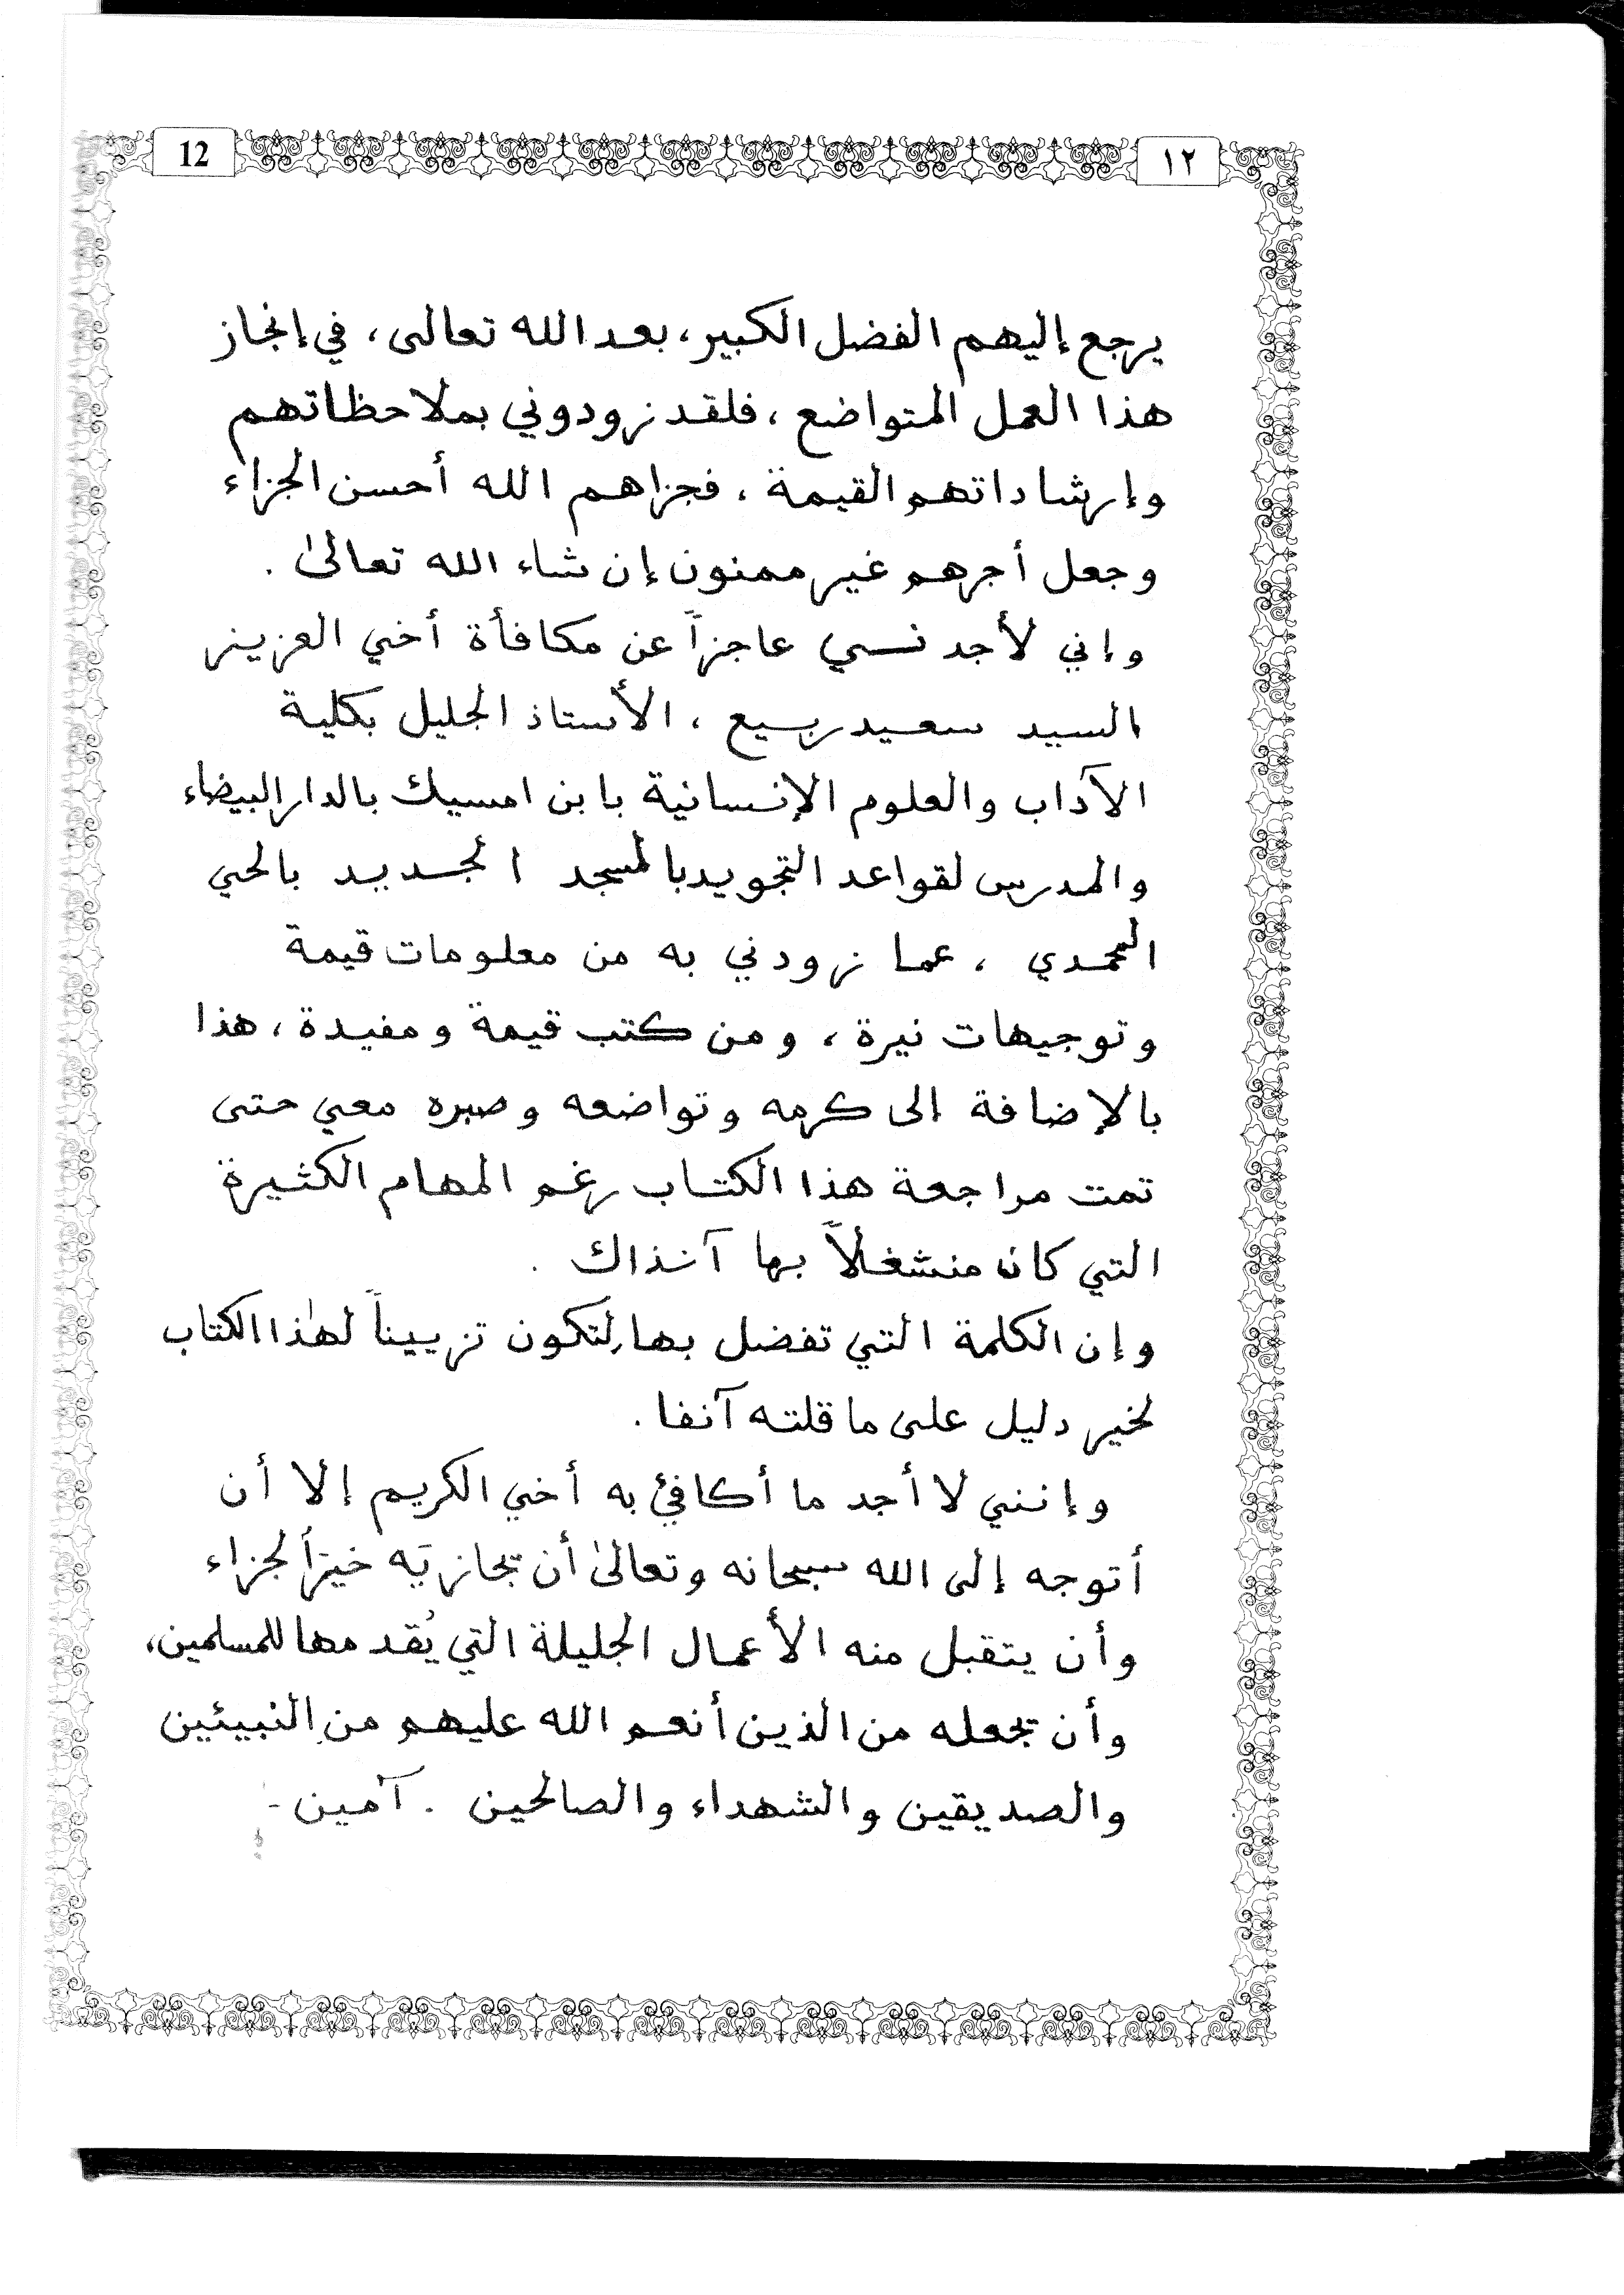 ١٢
12
يرجع إليهم الفضل الكبير، بعد الله تعالى، في إنجاز
هذا العمل المتواضع، فلقد زودوني بملاحظاتهم
وإرشاداتهم القيمة، فجزاهم الله أحسن الجزاء
وجعل أجرهم غير ممنون إن شاء الله تعالىٰ.
وإني لأجد نسي عاجزاً عن مكافأة أخي العزيز
السيد سعيد ربيع، الأستاذ الجليل بكلية
الآداب والعلوم الإنسانية بابن امسيك بالدار البيضاء
والمدرس لقواعد التجويد بالمسجد الجديد بالحي
المحمدي، عما زودني به من معلومات قيمة
وتوجيهات نيرة، ومن كتب قيمة ومفيدة، هذا
بالإضافة الى كرمه وتواضعه وصبره معي حتى
تمت مراجعة هذا الكتاب رغم المهام الكثيرة
التي كان منشغلاً بها آنذاك.
وإن الكلمة التي تفضل بها لِتكون تزييناً لهٰذا الكتاب
لخير دليل على ما قلته آنفا.
وإنني لا أجد ما أكافئ به أخي الكريم إلا أن
أتوجه إلى الله سبحانه وتعالىٰ أن يجازيَه خيرَ الجزاء
وأن يتقبل منه الأعمال الجليلة التي يُقدمها للمسلمين،
وأن يجعله من الذين أنعم الله عليهم من النبيئين
والصديقين والشهداء والصالحين. آمين -